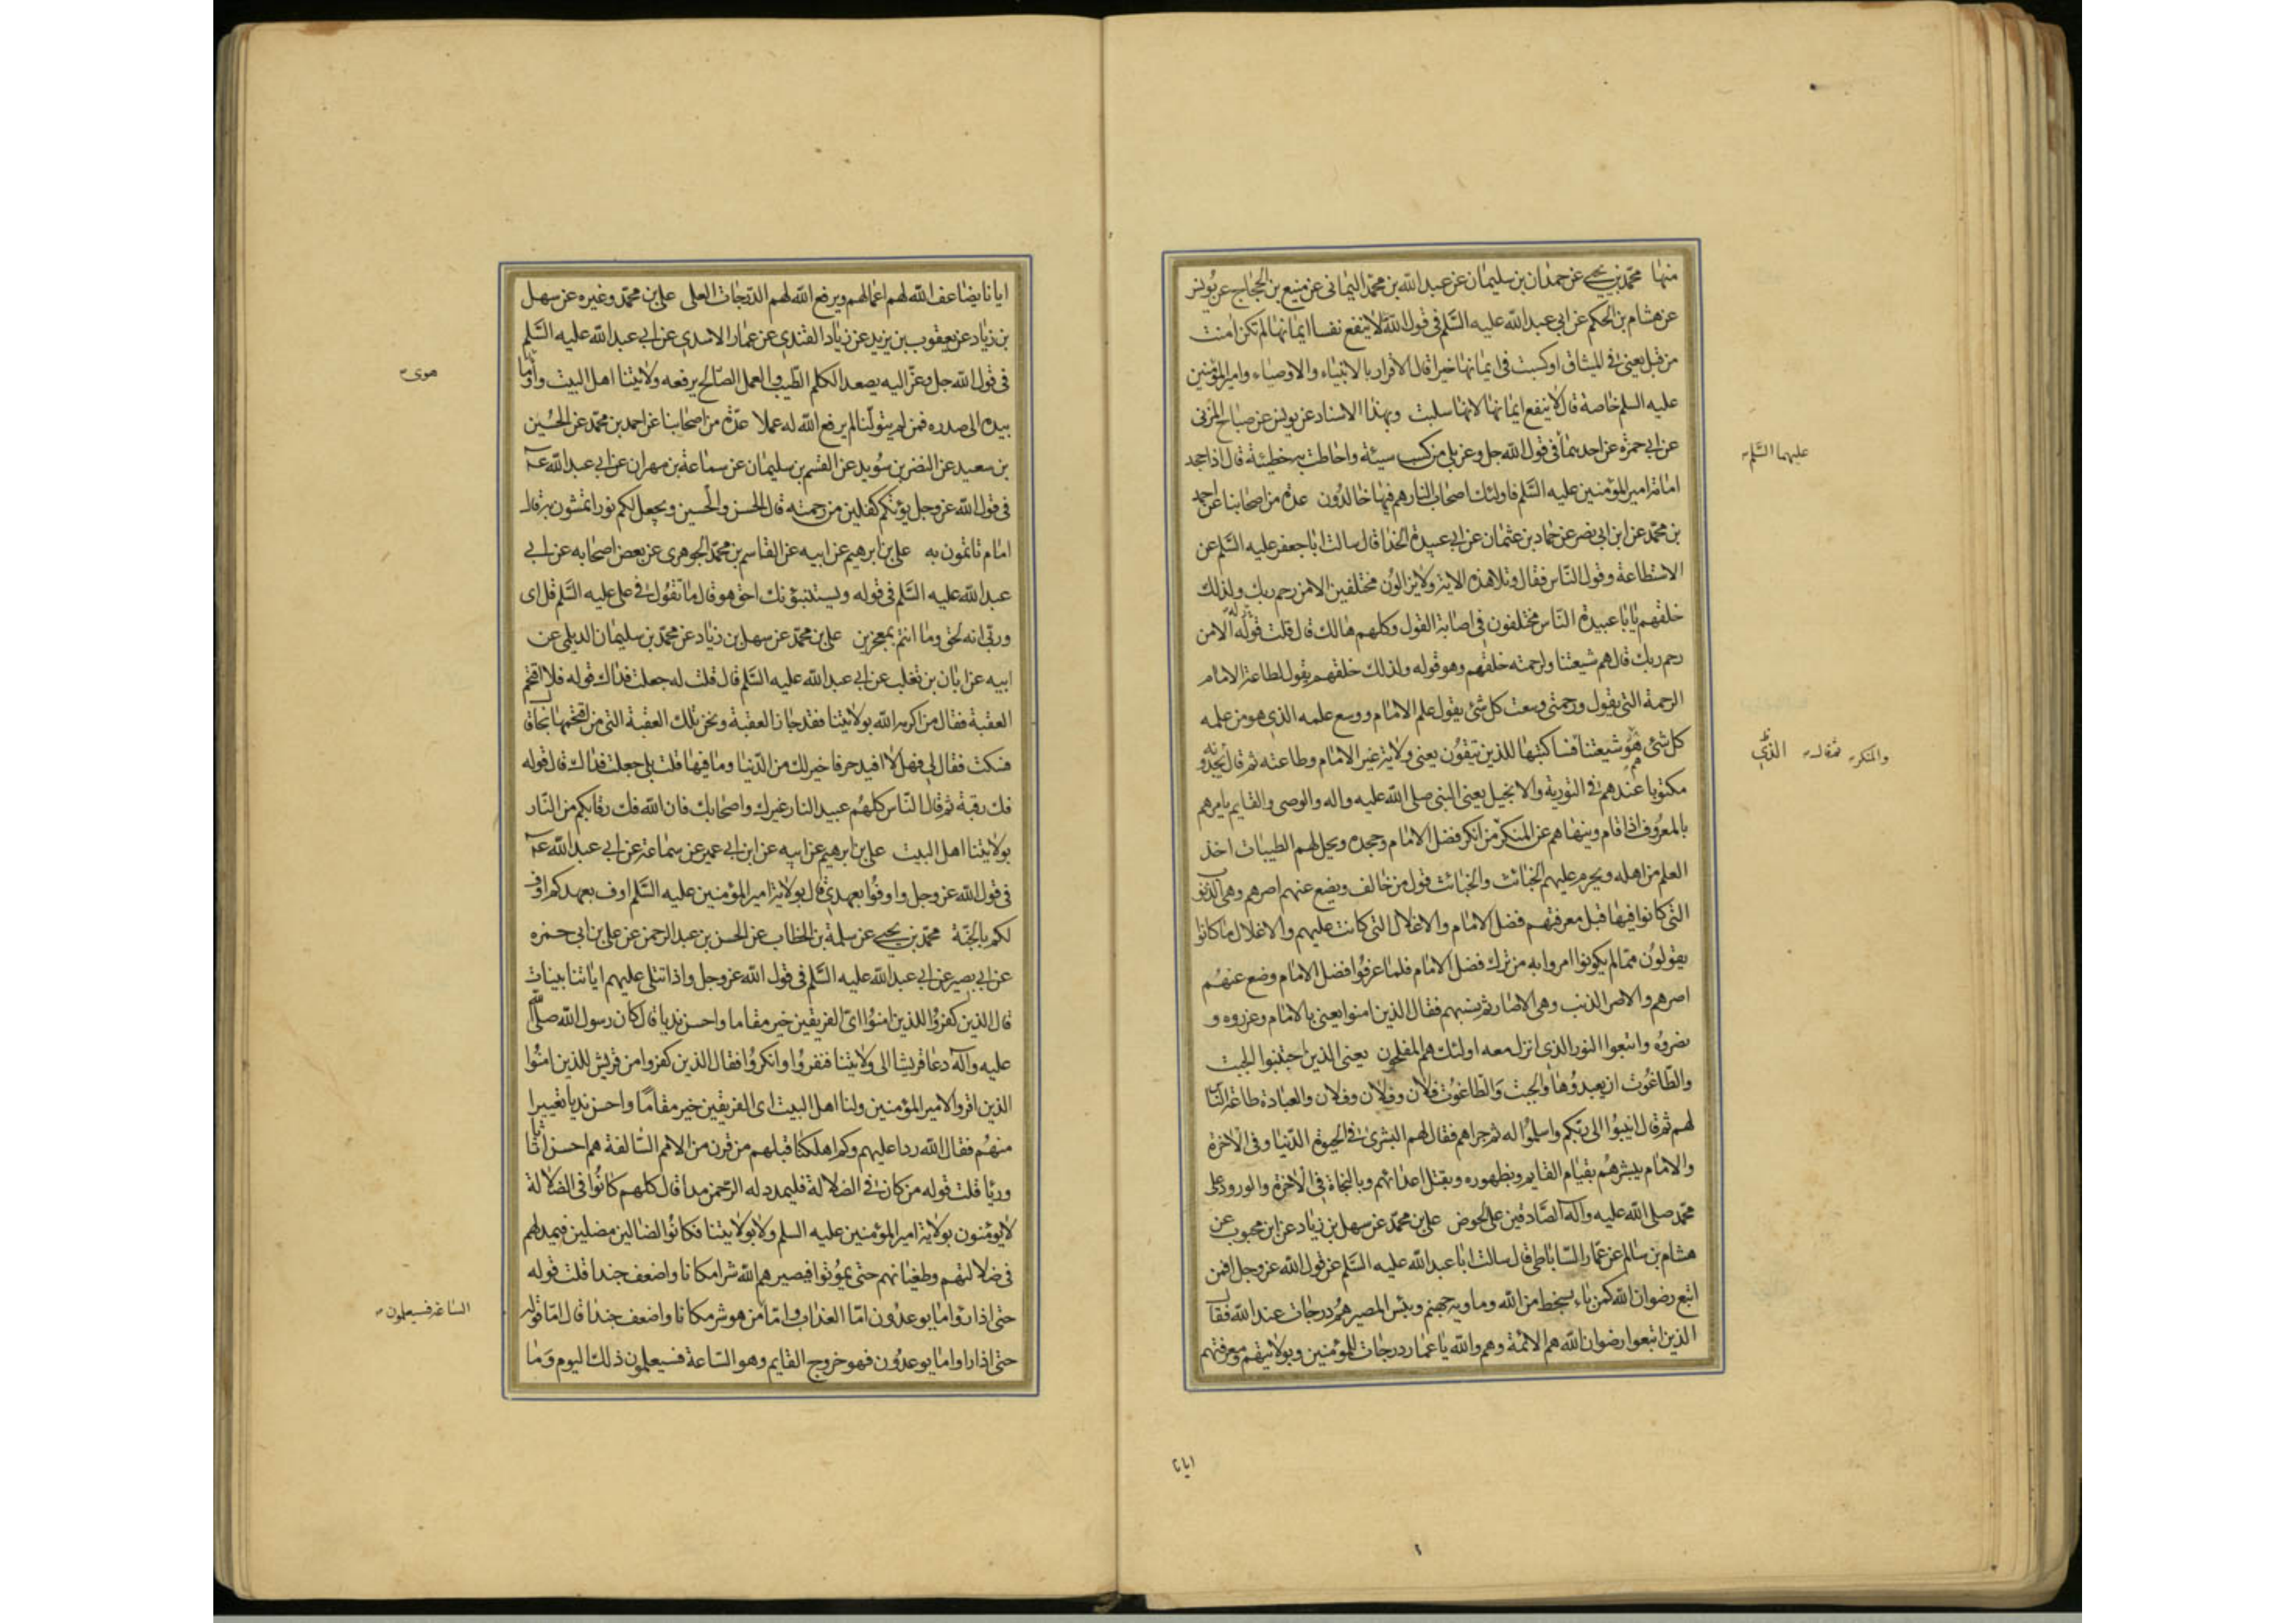 منها محمد بن يحيى عن حمدان بن سليمان عن عبد الله بن محمد اليماني عن منيع بن الحجاج عن يونس
عن هشام بن الحكم عن ابي عبد الله عليه السلم في قول الله لا ينفع نفسا ايمانها لم تكن امنت
من قبل يعني في الميثاق او كسبت في ايمانها خيرا قال الاقرار بالانبياء والاوصياء وامير المؤمنين
عليه السلم خاصة قال لا ينفع ايمانها لانها سلبت وبهذا الاسناد عن يونس عن صباح المزني
عن ابي حمزة عن احدهما في قول الله جل وعز بلى من كسب سيئة واحاطت به خطيئة قال اذا جحد
امامة امير المؤمنين عليه السلم فاولئك اصحاب النار هم فيها خالدون عدة من اصحابنا عن احمد
بن محمد عن ابن ابي نصر عن حماد بن عثمان عن ابي عبيدة الحذا قال سالت ابا جعفر عليه السلم عن
الاستطاعة وقول الناس فقال وتلا هذه الاية ولا يزالون مختلفين الا من رحم ربك ولذلك
خلقهم يا با عبيدة الناس مختلفون في اصابة القول وكلهم هالك قال قلت قوله الا من
رحم ربك قال هم شيعتنا ولرحمته خلقهم وهو قوله ولذلك خلقهم يقول لطاعة الامام
الرحمة التي يقول ورحمتي وسعت كل شئ يقول علم الامام ووسع علمه الذي هو من علمه
كل شئ هو شيعتنا فساكتبها للذين يتقون يعني ولاية غير الامام وطاعته ثم قال يجدونه
مكتوبا عندهم في التورية والانجيل يعني النبي صلى الله عليه واله والوصي والقايم يامرهم
بالمعروف اذا قام وينهاهم عن المنكر من انكر فضل الامام وجحده ويحل لهم الطيبات اخذ
العلم من اهله ويحرم عليهم الخبائث والخبائث قول من خالف ويضع عنهم اصرهم وهي الذنوب
التي كانوا فيها قبل معرفتهم فضل الامام والاغلال التي كانت عليهم والاغلال ما كانوا
يقولون مما لم يكونوا امروا به من ترك فضل الامام فلما عرفوا فضل الامام وضع عنهم
اصرهم والاصر الذنب وهي الاصار ثم نسبهم فقال الذين امنوا يعني بالامام وعزروه و
نصروه واتبعوا النور الذي انزل معه اولئك هم المفلحون يعني الذين اجتنبوا الجبت
والطاغوت ان يعبدوها والجبت والطاغوت فلان وفلان وفلان والعبادة طاعة الناس
لهم ثم قال انيبوا الى ربكم واسلموا له ثم جزاهم فقال لهم البشرى في الحيوة الدنيا وفي الاخرة
والامام يبشرهم بقيام القايم وبظهوره وبقتل اعدائهم وبالنجاة في الاخرة والورود على
محمد صلى الله عليه واله الصادقين على الحوض علي بن محمد عن سهل بن زياد عن ابن محبوب عن
هشام بن سالم عن عمار الساباطي قال سالت ابا عبد الله عليه السلم عن قول الله عز وجل افمن
اتبع رضوان الله كمن باء بسخط من الله وماويه جهنم وبئس المصير هم درجات عند الله فقال
الذين اتبعوا رضوان الله هم الائمة وهم والله يا عمار درجات للمؤمنين وبولايتهم ومعرفتهم
عليهما السلم
والمنكر
الذي
ايانا
ايانا يضاعف الله لهم اعمالهم ويرفع الله لهم الدرجات العلى علي بن محمد وغيره عن سهل
بن زياد عن يعقوب بن يزيد عن زياد القندي عن عمار الاسدي عن ابي عبد الله عليه السلم
في قول الله جل وعز اليه يصعد الكلم الطيب والعمل الصالح يرفعه ولايتنا اهل البيت واوما
بيده الى صدره فمن لم يتولنا لم يرفع الله له عملا عدة من اصحابنا عن احمد بن محمد عن الحسين
بن سعيد عن النضر بن سويد عن القسم بن سليمان عن سماعة بن مهران عن ابي عبد الله عـ
في قول الله عز وجل يؤتكم كفلين من رحمته قال الحسن والحسين ويجعل لكم نورا تمشون به قال
امام تاتمون به علي بن ابرهيم عن ابيه عن القاسم بن محمد الجوهري عن بعض اصحابه عن ابي
عبد الله عليه السلم في قوله ويستنبؤنك احق هو قال ما تقول في علي عليه السلم قل اي
وربي انه لحق وما انتم بمعجزين علي بن محمد عن سهل بن زياد عن محمد بن سليمان الديلمي عن
ابيه عن ابان بن تغلب عن ابي عبد الله عليه السلم قال قلت له جعلت فداك قوله فلا اقتحم
العقبة فقال من اكرمه الله بولايتنا فقد جاز العقبة ونحن تلك العقبة التي من اقتحمها نجا قال
فسكت فقال لي فهلا افيدك حرفا خير لك من الدنيا وما فيها قلت بلى جعلت فداك قال قوله
فك رقبة ثم قال الناس كلهم عبيد النار غيرك واصحابك فان الله فك رقابكم من النار
بولايتنا اهل البيت علي بن ابرهيم عن ابيه عن ابن ابي عمير عن سماعة عن ابي عبد الله عـ
في قول الله عز وجل واوفوا بعهدي قال بولاية امير المؤمنين عليه السلم اوف بعهدكم اوف
لكم بالجنة محمد بن يحيى عن سلمة بن الخطاب عن الحسن بن عبد الرحمن عن علي بن ابي حمزه
عن ابي بصير عن ابي عبد الله عليه السلم في قول الله عز وجل واذا تتلى عليهم اياتنا بينات
قال الذين كفروا للذين امنوا اي الفريقين خير مقاما واحسن نديا قال كان رسول الله صلى الله
عليه واله دعا قريشا الى ولايتنا فنفروا وانكروا فقال الذين كفروا من قريش للذين امنوا
الذين اقروا لامير المؤمنين ولنا اهل البيت اي الفريقين خير مقاما واحسن نديا تعييرا
منهم فقال الله ردا عليهم وكم اهلكنا قبلهم من قرن من الامم السالفة هم احسن اثاثا
ورئيا قلت قوله من كان في الضلالة فليمدد له الرحمن مدا قال كلهم كانوا في الضلالة
لا يؤمنون بولاية امير المؤمنين عليه السلم ولا بولايتنا فكانوا الضالين مضلين فيمد لهم
في ضلالتهم وطغيانهم حتى يموتوا فيصيرهم الله شرا مكانا واضعف جندا قلت قوله
حتى اذا راوا ما يوعدون اما العذاب واما من هو شر مكانا واضعف جندا قال اما قوله
حتى اذا راوا ما يوعدون فهو خروج القايم وهو الساعة فسيعلمون ذلك اليوم وما
هوى
الساعة فسيعلمون